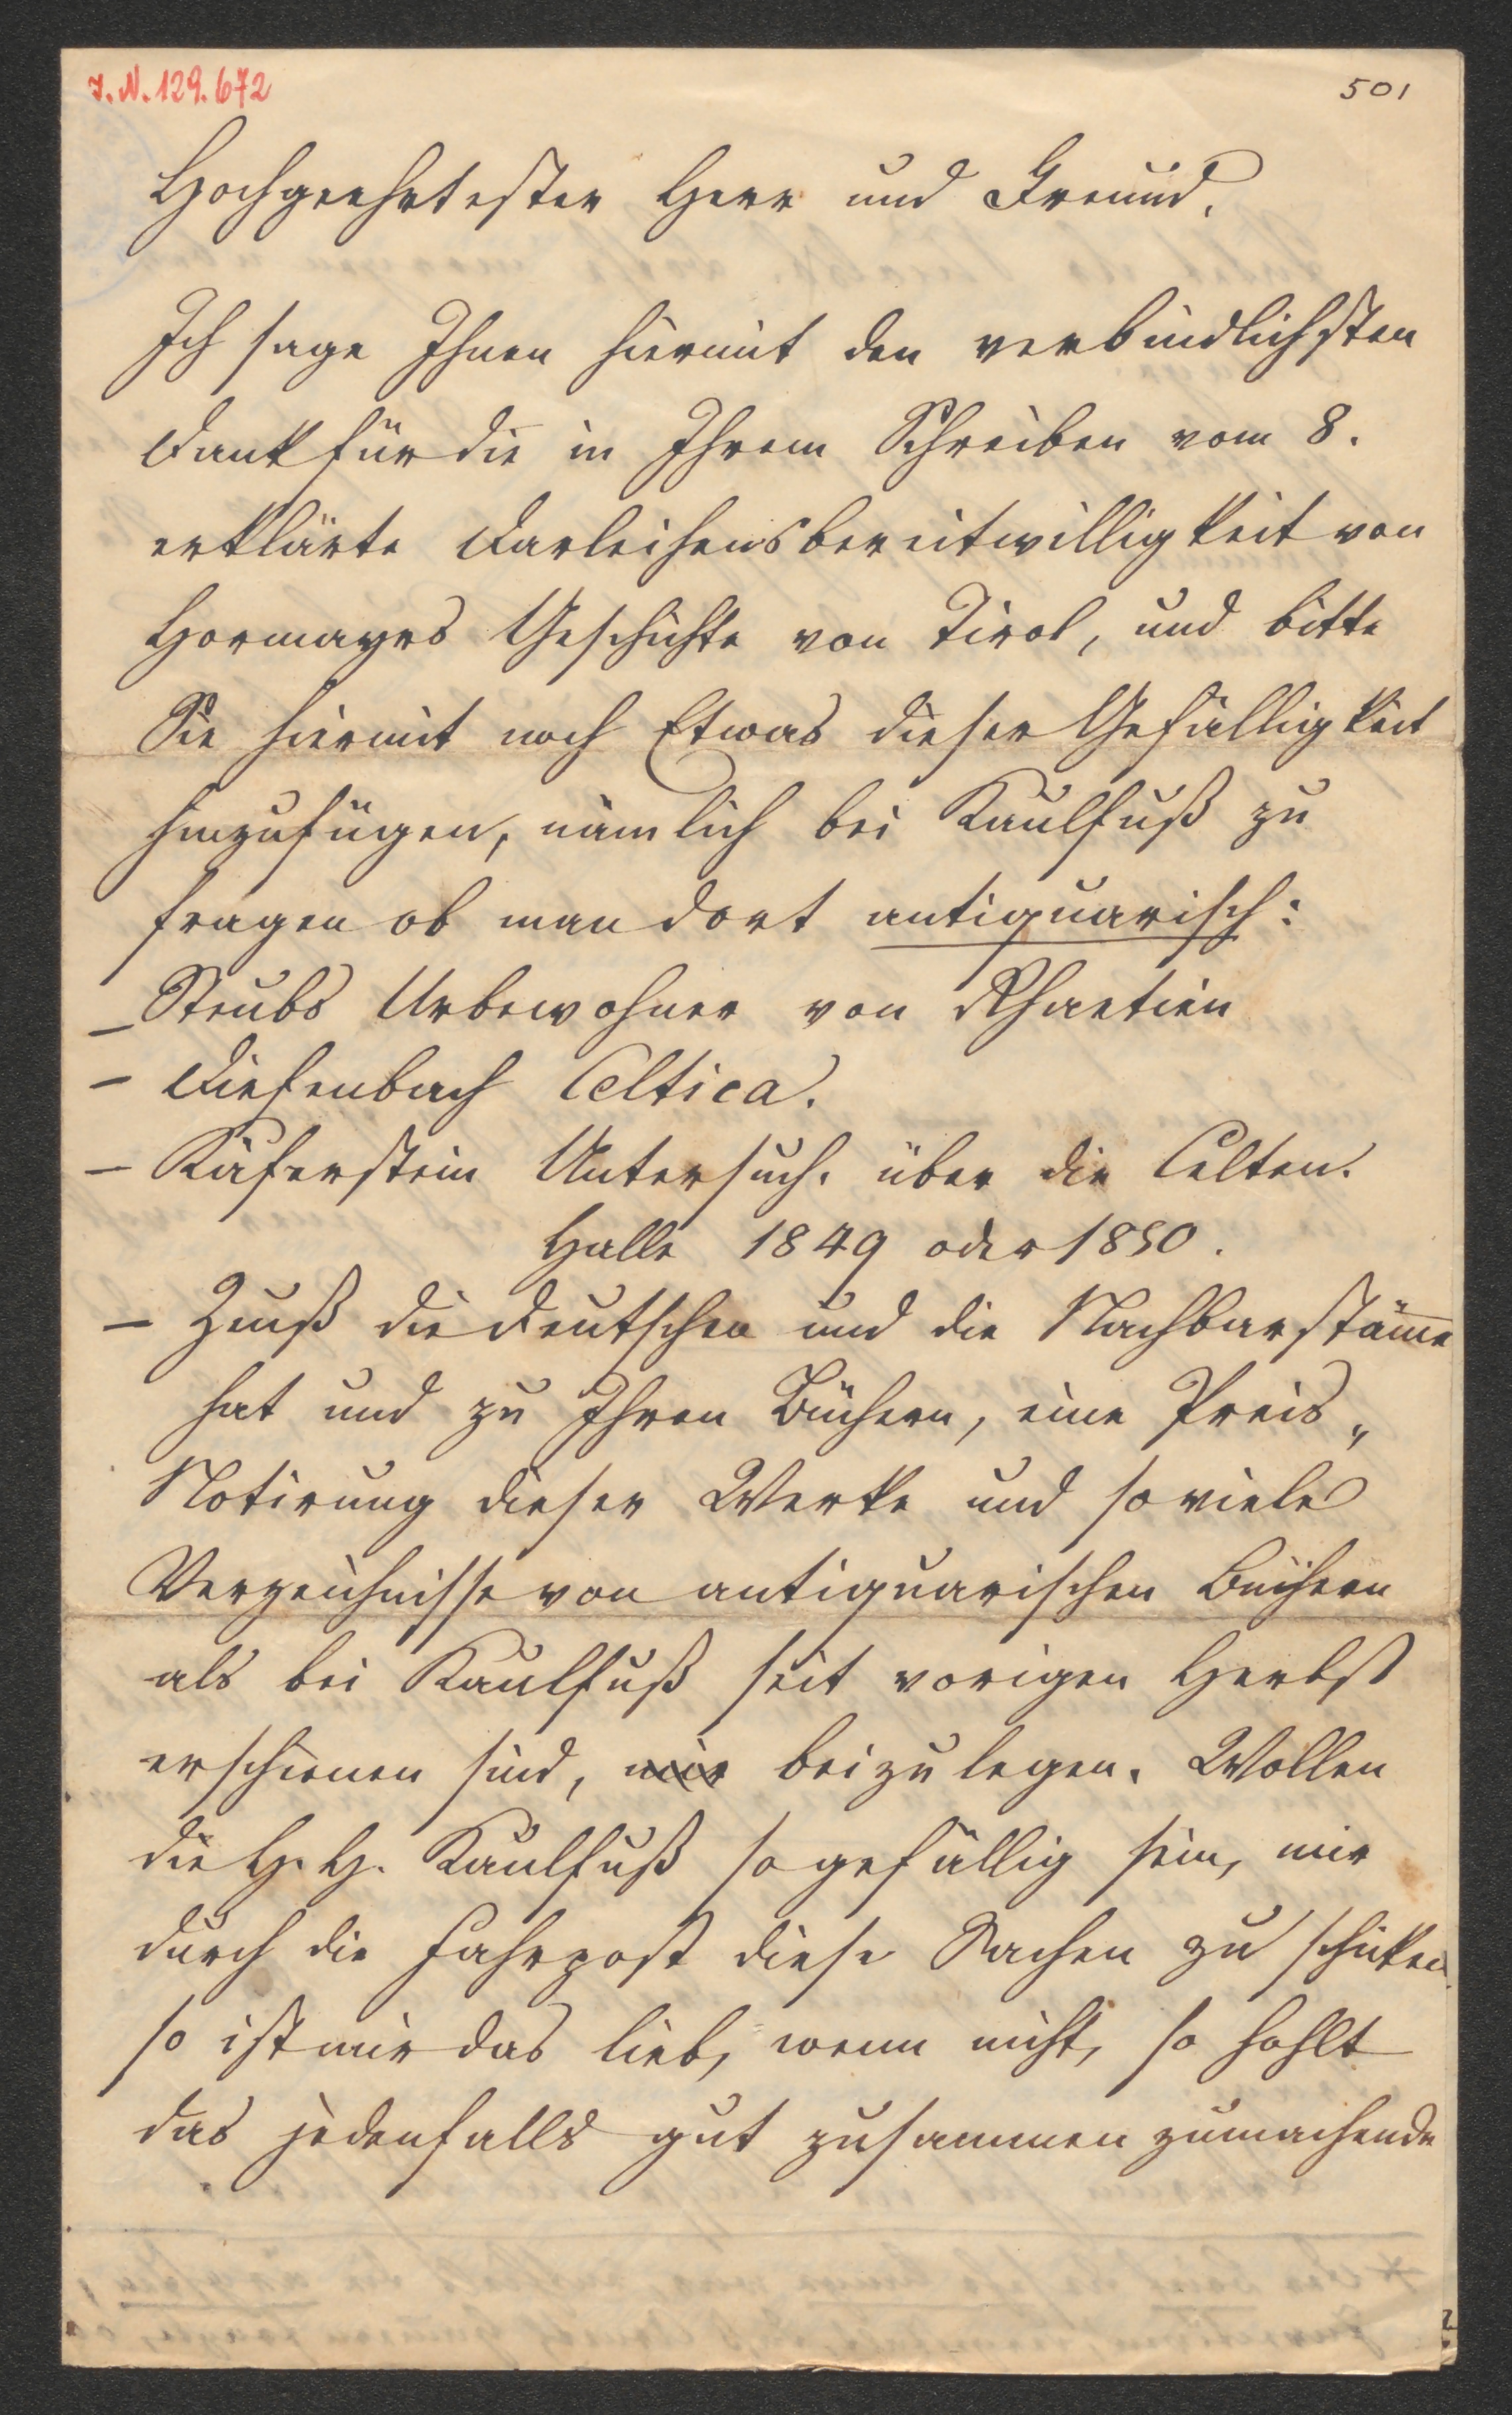 I.N.129.672
501
Hochgeehrtester Herr und Freund,
Ich sage Ihnen hiermit den verbindlichsten
Dank für die in Ihrem Schreiben vom 8.
erklärte Darleihensbereitwilligkeit von
Hormayrs Geschichte von Tirol, und bitte
Sie hiermit noch Etwas dieser Gefälligkeit
hinzufügen, nämlich bei Kaulfuß zu
fragen ob man dort antiquarisch:
– Steubs Urbewohner von Rhaetien
– Diefenbach Celtica.
– Käferstein Untersuch. über die Celten.
Halle 1849 oder 1850.
– Zeuß die Deutschen und die Nachbarstäm̅e
hat und zu Ihren Büchern, eine Preis„
Notirung dieser Werke und so viele
Verzeichnisse von antiquarischen Büchern
als bei Kaulfuß seit vorigen Herbst
erschienen sind, mir beizulegen. Wollen
die H. H. Kaulfuß so gefällig sein, mir
durch die Fahrpost diese Sachen zu schicken
so ist mir das lieb, wenn nicht, so hohlt
das jedenfalls gut zusammen zumachende